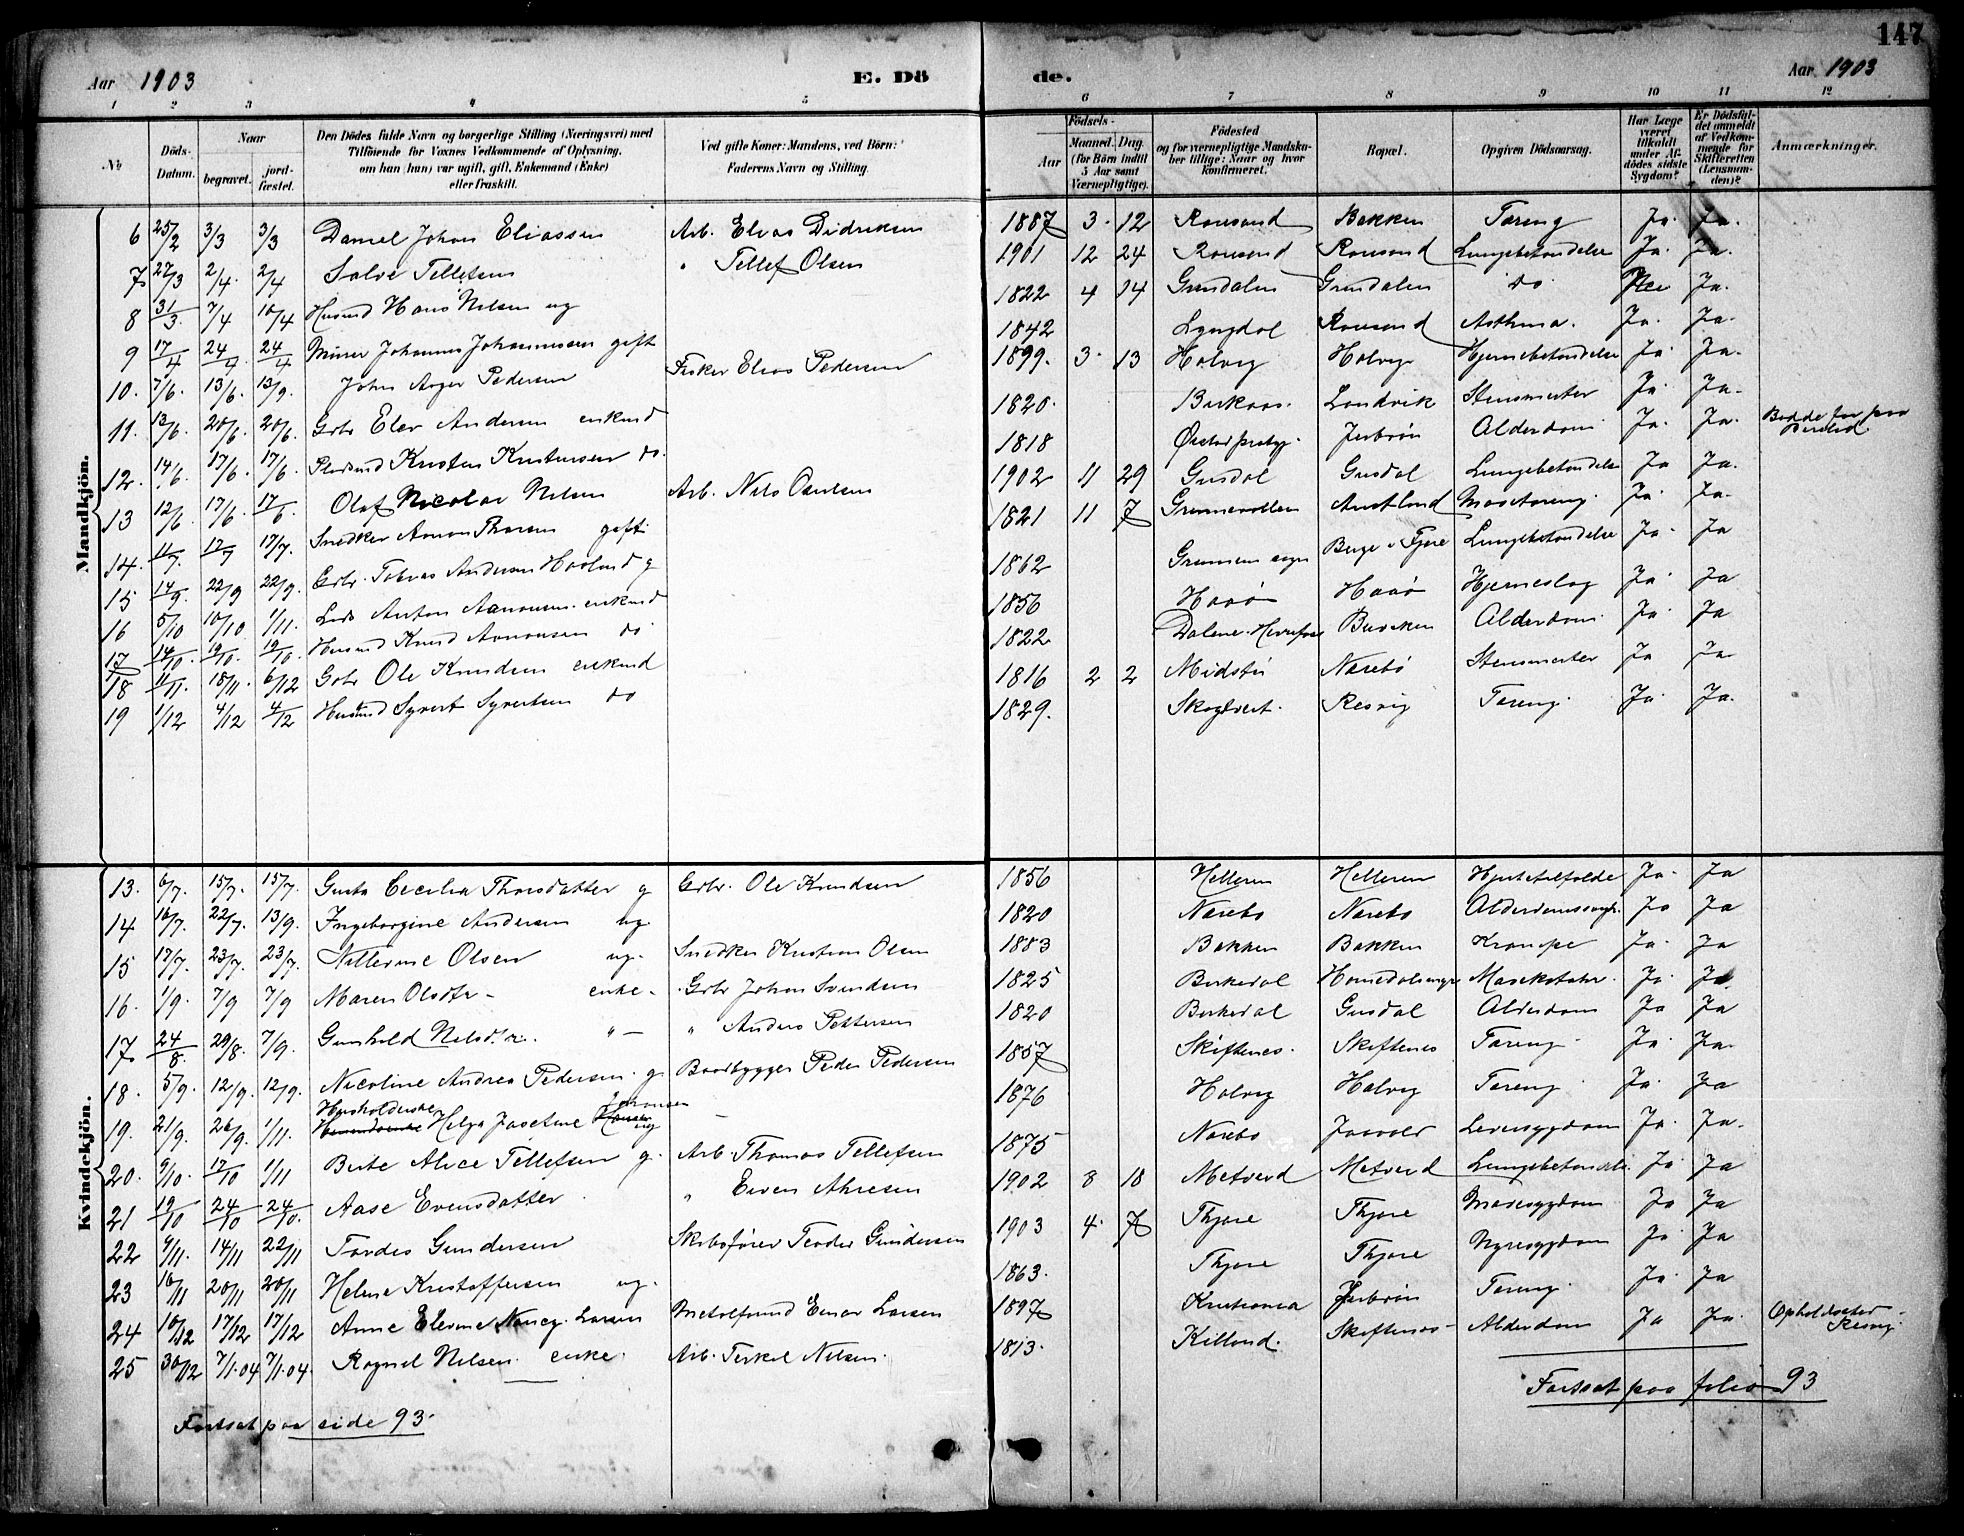 147
Aar 1903 E. Dö de. Aar 1903
1 2 3 4 5 6 7 8 9 10 11 12
No
Döds-Datum.
Naar
begravet.
jordfæstet.
Den Dödes fulde Navn og borgerlige Stilling (Næringsvei) med
Tilföiende for Voxnes Vedkommende af Oplysning,
om han (hun) var ugift, gift, Enkemand (Enke)
eller fraskilt.
Ved gifte Koner: Mandens, ved Börn:
Faderens Navn og Stilling.
Födsels-
Aar
Maaned. Dag.
(for Börn indtil
5 Aar samt
Værnepligtige).
Födested
og for værnepligtige Mandskaber tillige: Naar og hvor
konfirmeret.
Bopæl.
Opgiven Dödsaarsag.
Har Læge
været
tilkaldt
under Afdödes sidste
Sygdom?
Er Dödsfaldet anmeldt
af Vedkommende for
Skifteretten
(Lensmanden)?
Anmærkninger.
Mandkjön.
6 25/2 3/3 3/3 Daniel Johan Eliassen Arb. Elias Didriksen 1887 3 12 Roresand Bakken Tæring Ja Ja
7 27/3 2/4 2/4 Salve Tellefsen " Tellef Olsen 1901 12 24 Roresand Roresand Lungebetændelse Ja Ja
8 31/3 7/4 10/4 Husmd Hans Nilsen ug 1822 4 14 Grimdalen Grimdalen do Nei Ja
9 17/4 24/4 24/4 Murer Johannes Johannessen gift 1842 Lyngdal Roresand Asthma. Ja Ja
10. 7/6 13/6 13/9 John Asger Pedersen Fisker Elias Pedersen 1899. 3 13 Holvig Holvig Hjernebetændelse Ja Ja
11. 13/6 20/6 20/6 Grbr Elev Andersen enkmd 1820. Birkaas Landvik Stensmerter Ja Ja
12. 14/6 17/6 17/6 Kristen Kristensen do 1818 Jerbrön Alderdom Ja Ja
13 12/6 17/6 17/6 Olaf Nicolai Nilsen Arb. Nils Osulsen 1902 11 29 Gusdal Gusdal Lungebetændelse Ja Ja
14. 11/7 17/7 17/7 Snedker Aanon Thorsen gift 1821 11 7 Grønnevolden Austland Mavetæring Ja Ja
15 14/9 22/9 22/9 Grbr. Tobias Andersen Haaland g 1862 Berge i Fjære Lungebetændelse Ja Ja
16 5/10 10/10 1/11 Lods Anton Aanonsen enkmd 1856 Haaø Haaø Hjerneslag Ja Ja
17 14/10 19/10 19/10 Husmd Knud Aanonsen do 1822 Dalene Alderdom Ja Ja
18 11/11 18/11 6/12 Gbr Ole Knudsen enkmd 1816 2 2 Midstø Narebø Stensmerter Ja Ja
19 1/12 4/12 4/12 Husmd Syvert Syvertsen do 1829. Resvig Tæring Ja Ja
Kvindekjön.
13. 6/7 15/7 15/7 Cecilia Thorsdatter g Grbr. Ole Knudsen 1856 Helleren Helleren Hjertetilfælde Ja Ja
14 16/7 22/7 13/9 Ingeborgine Andersen ug 1820 Narebo Narebo Ja Ja
15 17/7 23/7 23/7 Nilleruine Olsen ug. Snedker Kristian Olsen 1883 Bakken Bakken Krampe Ja Ja
16. 1/9 7/9 7/9 Maren Olsdtr enke Grbr Johan Svendsen 1825 Birkedal Ja Ja
17 24/8 29/8 7/9 Gunhild Nilsd. " — " Anders Pettersen 1820 Birkedal Gusdal Alderdom Ja Ja
18. 5/9 12/9 12/9 Nicoline Andrea Pedersen g Baadbygger Peder Pedersen 1857 Skiftenes Skiftenes Tæring Ja Ja
19. 21/9 26/9 1/11 Husholderske Helga Josefine Johansen ug 1876 Holvig Holvig Tæring Ja Ja
20. 9/10 17/10 1/11 Berte Alice Tellefsen g. Arb. Thomas Tellefsen 1875 Narebo Leversygdom Ja Ja
21 19/10 24/10 24/10 Aase Evensdatter " Even Ahresen 1902 8 18 Metveid Metveid Lungebetændelse Ja Ja
22 9/11 14/11 22/11 Tordis Gundersen Skibsfører Teodor Gundersen 1903 4 7 Thjøre Thjøre Mavesygdom Ja Ja
23 16/11 20/11 20/11 Helene Kristoffersen ug. 1863. Thjøre Thjøre Nyresygdom Ja Ja
24 10/12 17/12 17/12 Anne Elevine Nancy Larsen Einar Larsen 1897 Kristiania Jerbrön Tæring Ja Ja
25 30/12 7/1.04 7/1.04 Ragnil Nilsen enke Arb. Terkel Nilsen 1813. Killand. Skiftenes Alderdom Ja Ja Opholdssted Resvig
Fortsat paa side 93.
Fortsat paa folio 93